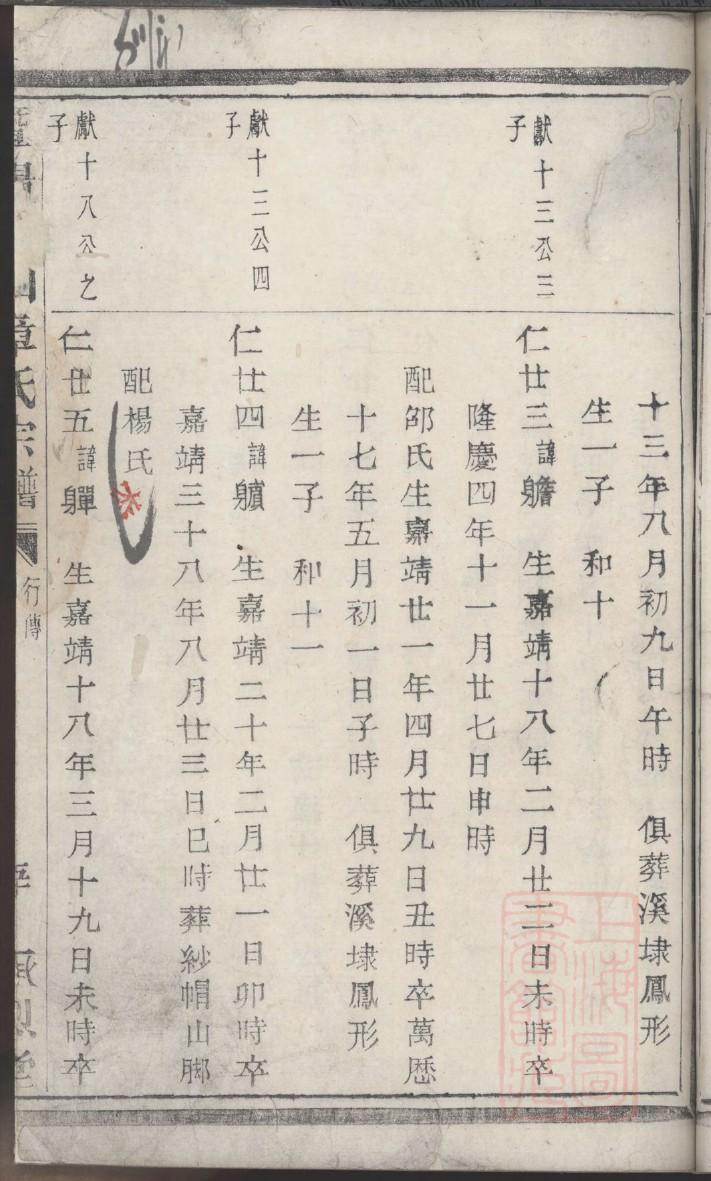 十三年八月初九日午時　俱葬溪埭鳳形
生一子　和十
獻十三公三子
仁廿三諱軉　生嘉靖十八年二月廿二日未時卒
隆慶四年十一月廿七日申時
配邵氏生嘉靖廿一年四月廿九日丑時卒萬歷
十七年五月初一日子時　俱葬溪埭鳳形
生一子　和十一
獻十三公四子
仁廿四諱　生嘉靖二十年二月廿一日卯時卒
嘉靖三十八年八月廿三日巳時葬紗帽山脚
配楊氏
獻十八公之子
仁廿五諱軃　生嘉靖十八年三月十九日未時卒
章氏宗譜
行傳
上海圖書館藏